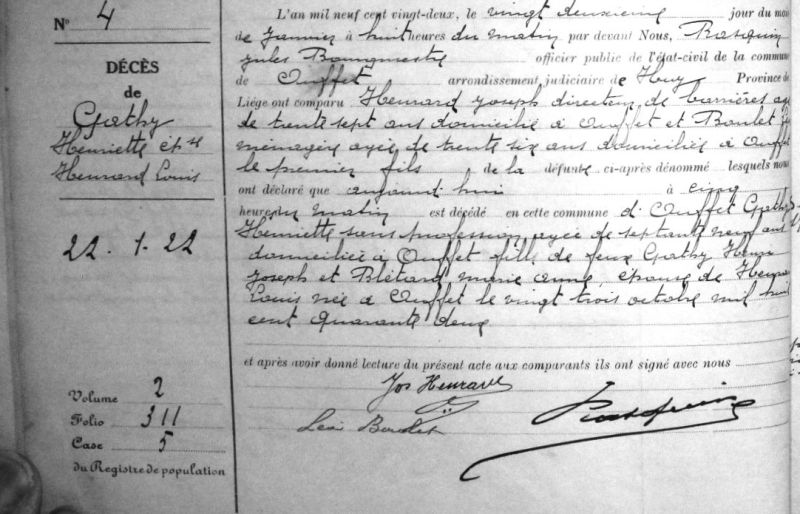 N° 4
DÉCÈS
de
Gathy
Henriette ép se
Henrard Louis
22. 1. 22
Volume 2
Folio 311
Case 5
du Registre de population
L'an mil neuf cent vingt-deux, le vingt deuxième jour du mois
de Janvier à huit heures du matin par devant Nous, Rasquin
Jules Bourgmestre officier public de l'état-civil de la commune
de Ouffet arrondissement judiciaire de Huy Province de
Liége ont comparu Henrard Joseph directeur de barrières
de trente sept ans domicilié à Ouffet et Boulet
ménagère agée de trente six ans domiciliée à Ouffet
le premier fils de la défunte ci-après dénommé lesquels nous
ont déclaré que aujourd'hui à cinq
heures du matin est décédé en cette commune d'Ouffet Gathy
Henriette sans profession agée de septante neuf ans
domiciliée à Ouffet fille de feux Gathy Henri
Joseph et Blétard Marie Anne, épouse de Henrard
Louis née à Ouffet le vingt trois octobre mil huit
cent quarante deux
et après avoir donné lecture du présent acte aux comparants ils ont signé avec nous
Jos Henrard
Boulet
Rasquin